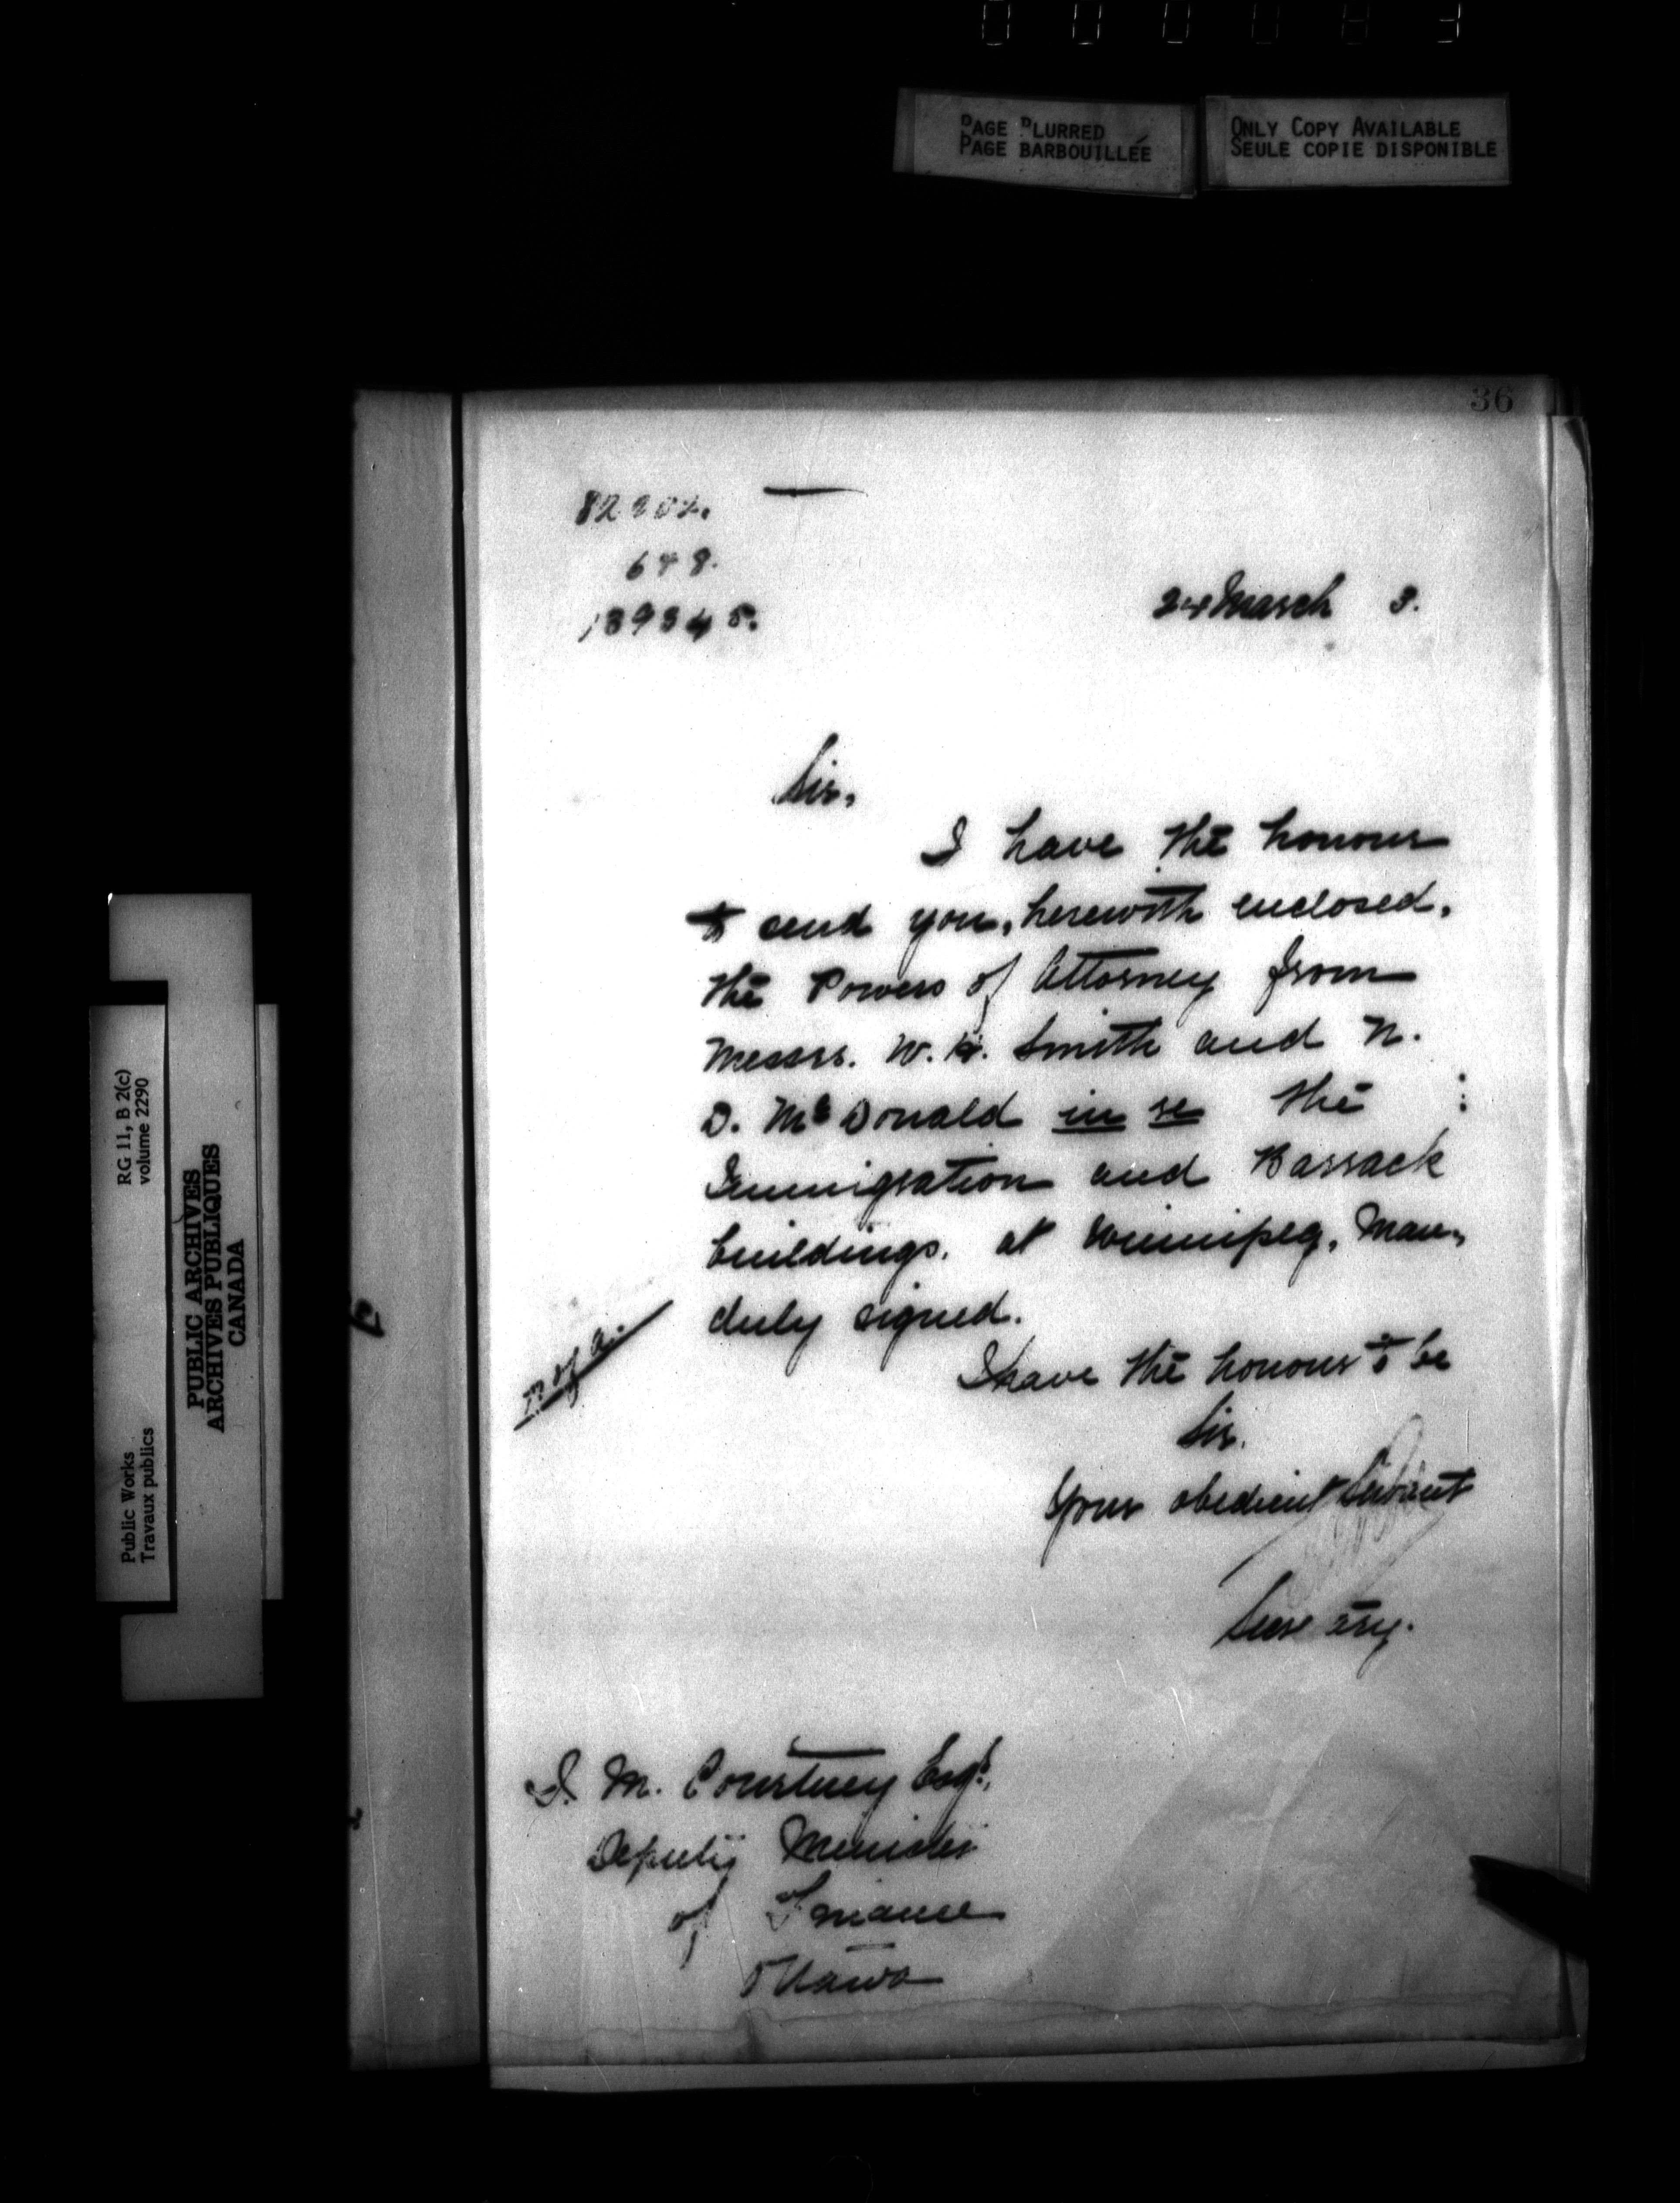 PAGE BLURRED
PAGE BARBOUILLÉE
ONLY COPY AVAILABLE
SEULE COPIE DISPONIBLE
36
648.
139345.
24 March 3.
Sir,
I have the honour
to send you, herewith enclosed,
the Powers of Attorney from
Messrs. W. H. Smith and N.
D. McDonald in re the
Immigration and Barrack
buildings, at Winnipeg, Man.,
duly signed.
P. of A.
I have the honour to be
Sir,
Your obedient Servant
Secretary.
J. M. Courtney Esqr.,
Deputy Minister
of Finance
Ottawa
RG 11, B 2(c)
volume 2290
PUBLIC ARCHIVES
ARCHIVES PUBLIQUES
CANADA
Public Works
Travaux publics